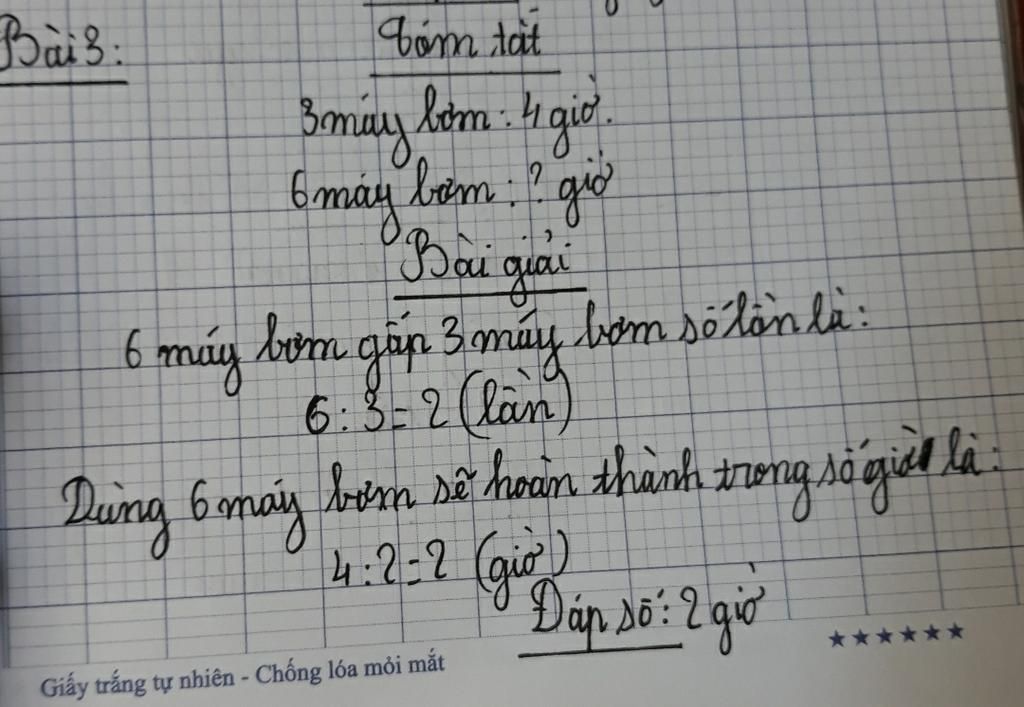 Bài 3:
Tóm tắt
3 máy bơm: 4 giờ.
6 máy bơm: ? giờ
Bài giải
6 máy bơm gấp 3 máy bơm số lần là:
6 : 3 = 2 (lần)
Dùng 6 máy bơm sẽ hoàn thành trong số giờ là:
4 : 2 = 2 (giờ)
Đáp số: 2 giờ
Giấy trắng tự nhiên - Chống lóa mỏi mắt